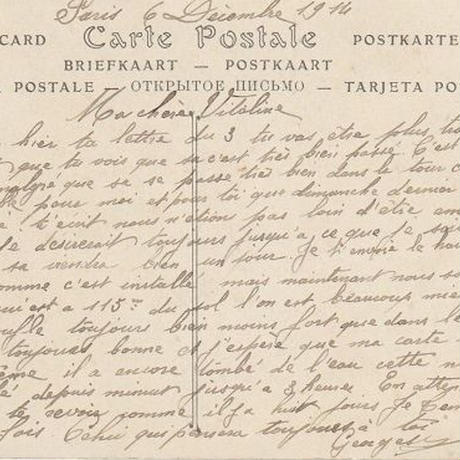 Paris 6 Décembre 1914
CARD Carte Postale POSTKARTE
BRIEFKAART — POSTKAART
POSTALE — ОТКРЫТОЕ ПИСЬМО — TARJETA PO
Ma chère Vitaline
hier ta lettre du 3 tu vas être plus
que tu vois que sa c'est très bien passé C'est
malgré que se se passe très bien dans le tour
pour moi et pour toi que dimanche dernier
t'écrit nous n'étion pas loin d'être
desirerait toujours jusqu'a ce que je
sa viendra bien un jour. Je t'envoie le
comme c'est installé mais maintenant nous
qu'est a 115m du sol l'on est beaucoup
souffle toujours bien moins fort que dans le
toujours bonne et j'espère que ma carte
il a encore tombé de l'eau cette
depuis minuit jusqu'a 3 heures En
te revoir comme il y a huit jours Je
fois Celui qui pensera toujours à toi
Georges